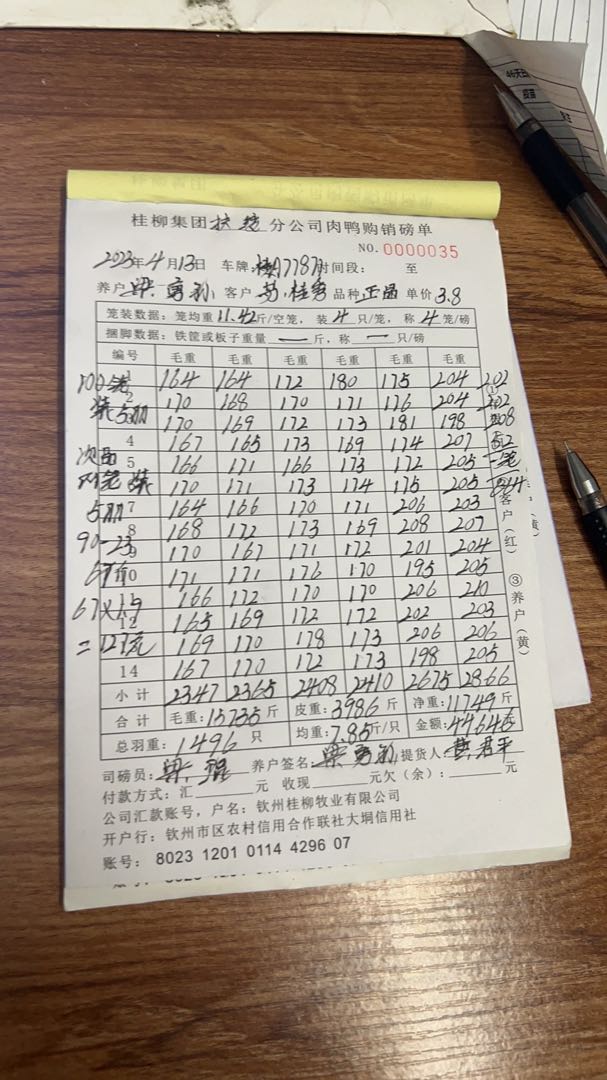 46天
疫苗
桂柳集团 分公司肉鸭购销磅单
NO.0000035
2023年4月13日 车牌: 7787 时间段: 至
养户 梁勇孙 客户 苏桂秀 品种 正品 单价 3.8
笼装数据: 笼均重 11.42斤/空笼, 装 4 只/笼, 称 4 笼/磅
捆脚数据: 铁筐或板子重量 — 斤, 称 — 只/磅
编号 毛重 毛重 毛重 毛重 毛重 毛重
164 164 172 180 175 204 202
170 168 170 171 176 204 202
170 169 172 173 181 198 208
4 167 165 173 169 174 207
5 166 171 166 173 172 205
170 171 173 174 175 205
7 164 166 170 171 206 203
8 168 172 173 169 208 207
9 170 167 171 172 201 204
10 171 171 176 170 195 205
11 166 172 170 170 206 210
12 165 169 172 172 202 203
169 170 178 173 206 206
14 167 170 172 173 198 205
小计 2347 2365 2408 2410 2675 2866
合计 毛重: 15735 斤 皮重: 3986 斤 净重: 11749 斤
总羽重: 1496 只 均重: 7.85 斤/只 金额: 44646
次品
客户(红)
③养户(黄)
司磅员: 梁 养户签名: 梁勇孙 提货人: 君平
付款方式: 汇 元 收现 元欠(余): 元
公司汇款账号, 户名: 钦州桂柳牧业有限公司
开户行: 钦州市区农村信用合作联社大垌信用社
账号: 8023 1201 0114 4296 07